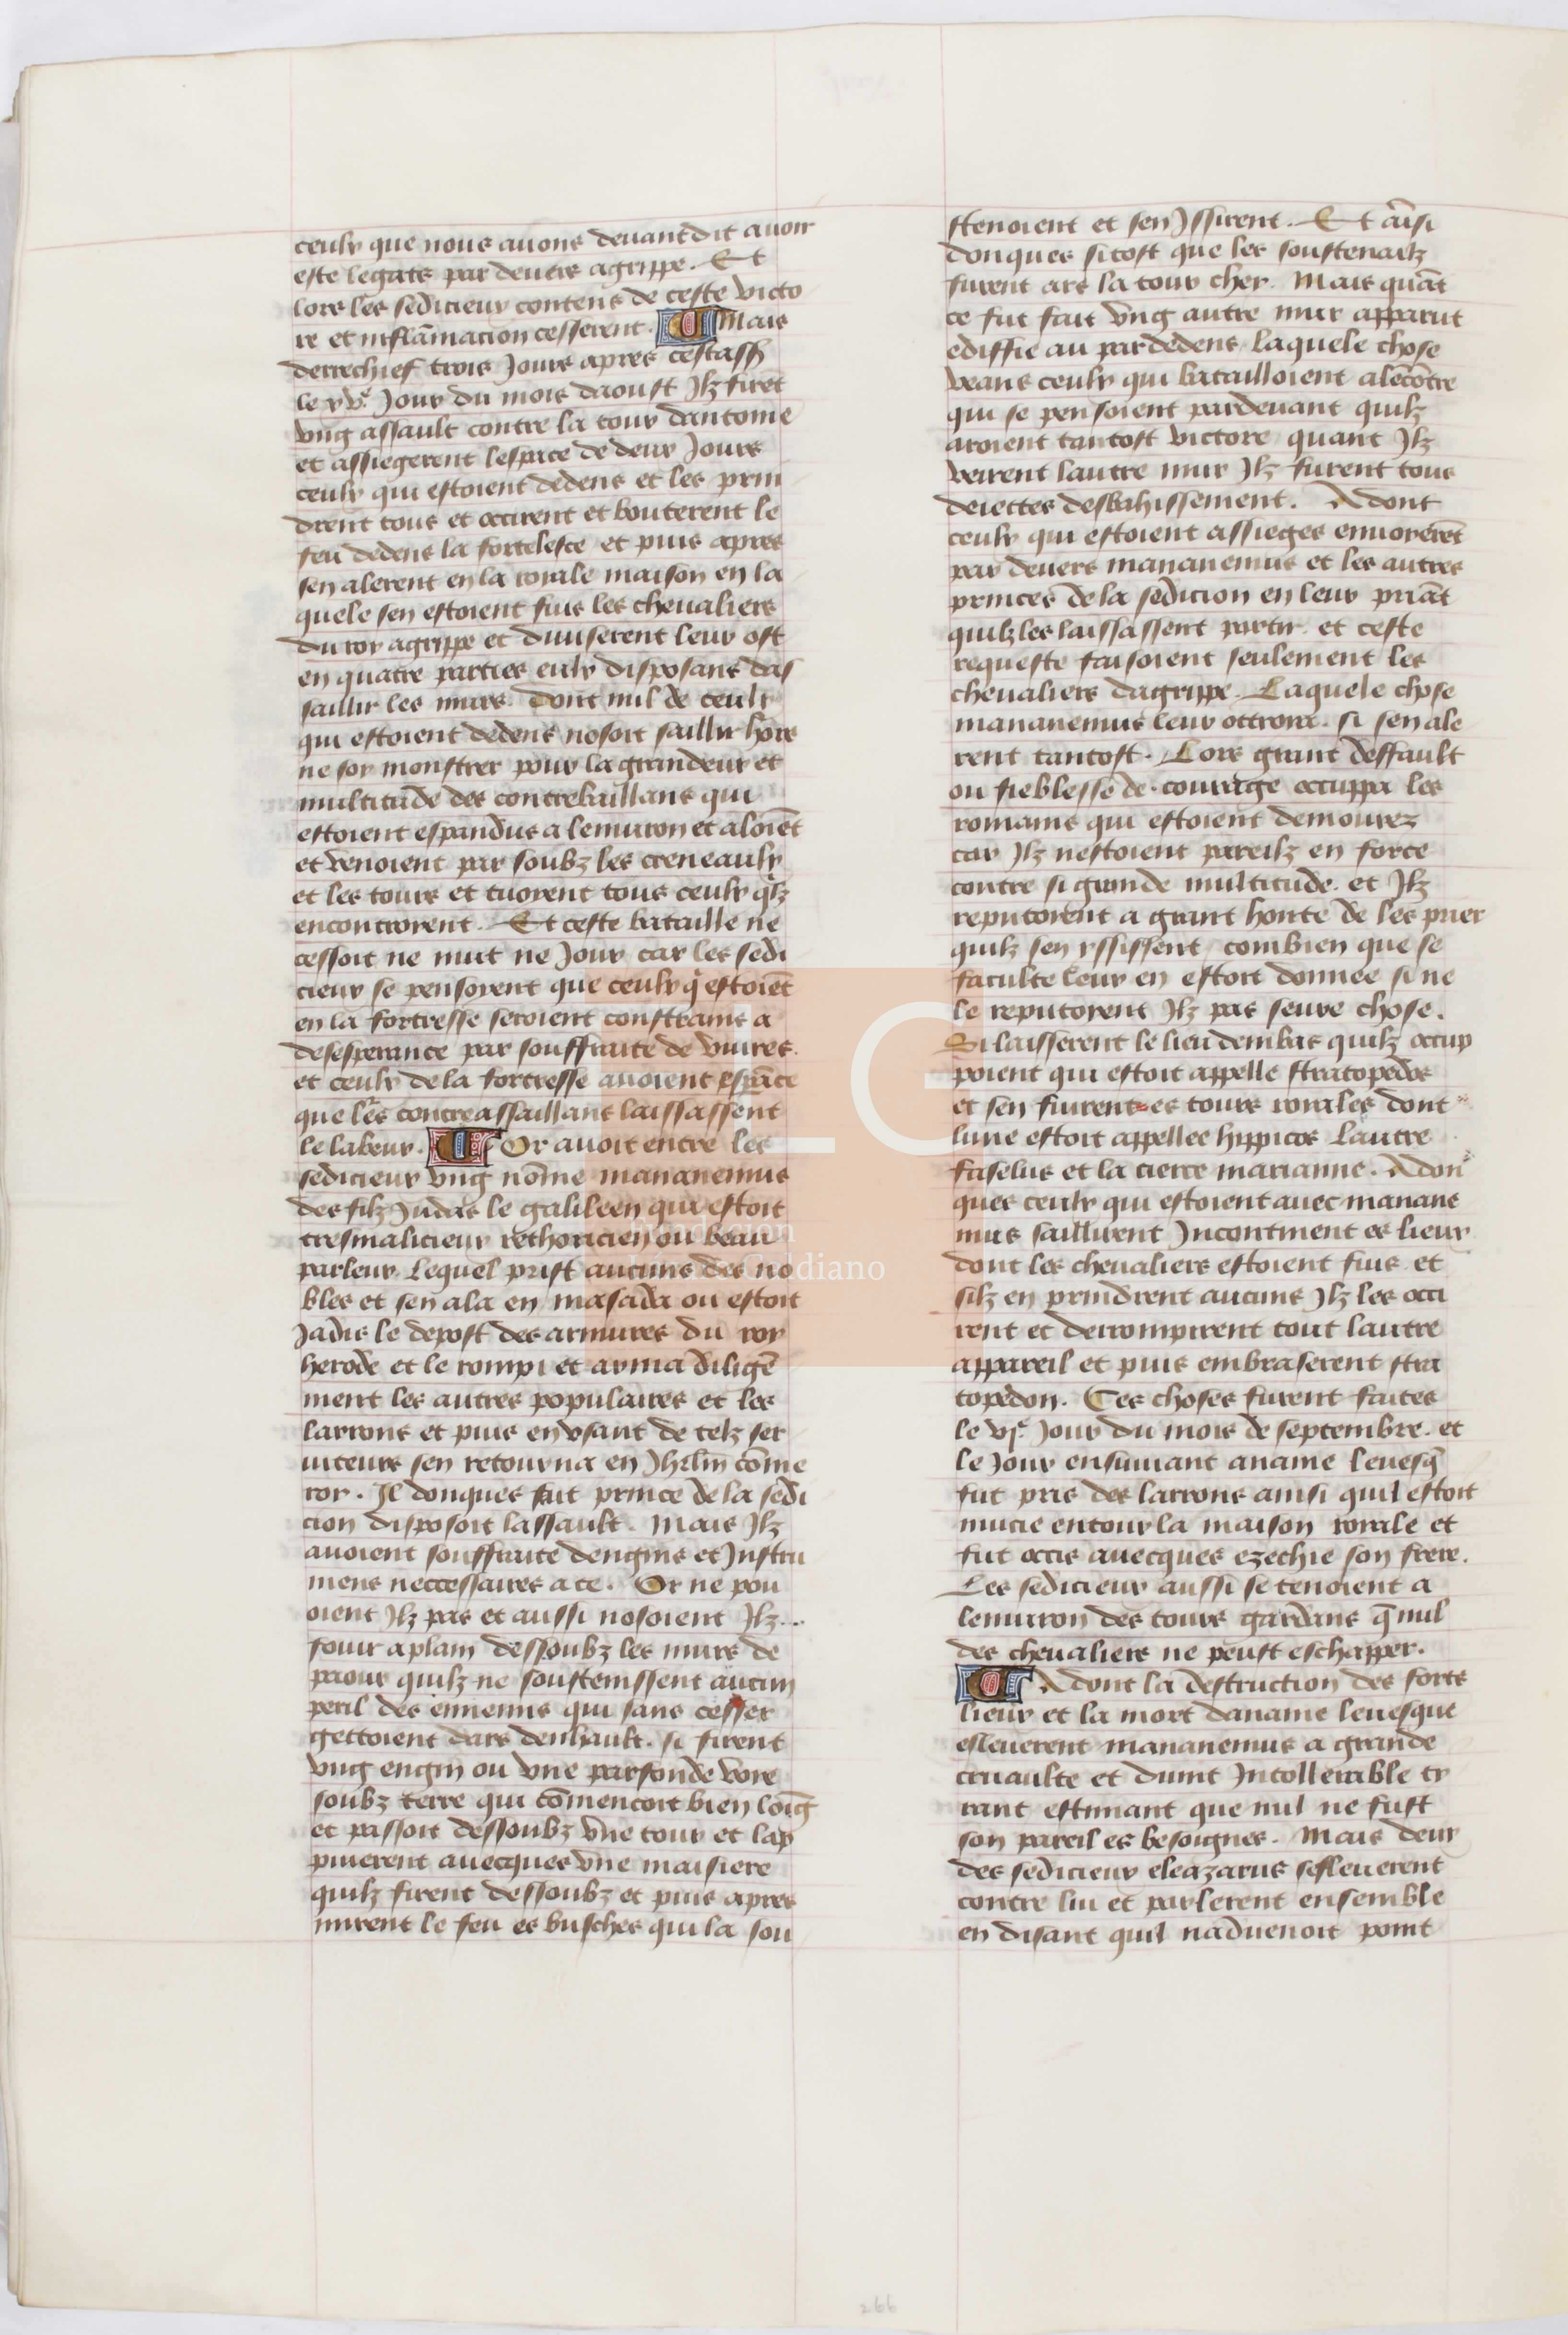 ceulx que nous auons deuant dit auoir
este legats par deuers agrippe. Et
lors les sedicieux contens de ceste victo
re et inflāmacion cesserent. Mais
derrechief trois Jours apres cestass̄
le xve Jour du mois daoust Jlz firēt
vng assault contre la tour dantome
et assiegerent lespace de deux Jours
ceulx qui estoient dedens et les prin
drent tous et occirent et bouterent le
feu dedens la fortelesce et puis apres
sen alerent en la roiale maison en la
quele sen estoient fuis les cheualiers
du roy agrippe et diuiserent leur ost
en quatre parties eulx disposans das
saillir les murs. Dont nul de ceulx
qui estoient dedens nosoit saillir hors
ne soy monstrer pour la grandeur et
multitude des contrebaillans qui
estoient espandus a lenuiron et aloiēt
et venoient par soubz les creneaulx
et les tours et tuoyent tous ceulx q̄lz
encontroient. Et ceste bataille ne
cessoit ne nuit ne Jour car les sedi
cieux se pensoyent que ceulx q̄ estoiēt
en la fortresse seroient constrains a
desesperance par souffraite de viures.
et ceulx de la fortresse auoient espāce
que les contreassaillans laissassent
le labeur. Or auoit entre les
sedicieux vng nōme mananemus
des filz Judas le galileen qui estoit
tresmalicieux rethoricien ou beau
parleur. Lequel prist aucuns des no
bles et sen ala en masada ou estoit
Jadis le depost des armures du roy
herode et le rompi et arma diligē
ment les autres populaires et les
larrons et puis en vsant de telz ser
uiteurs sen retourna en Jhrlm̄ cōme
roy. Il donques fut prince de la sedi
cion disposoit lassault. Mais Jlz
auoient souffraite dengins et Instru
mens neccessaires a ce. Or ne pou
oient Jlz pas et aussi nosoient Jlz..
fouir a plain dessoubz les murs de
paour quilz ne soustenissent aucun
peril des ennemis qui sans cesser
gettoient dars denhault. si firent
vng engin ou vne parfonde voye
soubz terre qui cōmencoit bien loīg
et passoit dessoubz vne tour et lap
puierent auecques vne maisiere
quilz firent dessoubz et puis apres
mirent le feu es busches qui la sou
stenoient et sen Jssirent. Et aīsi
donques sitost que les soustenailz
furent ars la tour chey. Mais quāt
ce fut fait vng autre mur apparut
ediffie au par dedens laquele chose
veans ceulx qui batailloient alēcōtre
qui se pensoient pardeuant quilz
aroient tantost victore quant Jlz
veirent lautre mur Jlz furent tous
deiettes desbahissement. Adont
ceulx qui estoient assieges enuoyerēt
par deuers mananemus et les autres
princes de la sedicion en leur priāt
quilz les laissassent partir et ceste
requeste faisoient seulement les
cheualiers dagrippe. Laquele chose
mananemus leur ottroia. si sen ale
rent tantost. Lors grant deffault
ou fieblesse de courage occuppa les
romains qui estoient demourez
car Jlz nestoient pareilz en force
contre si grande multitude. et Jlz
reputoient a grant honte de les prier
quilz sen yssissent combien que se
faculte leur en estoit donnee si ne
le reputoient Jlz pas seure chose.
Si laisserent le lieu dembas quilz occup
poient qui estoit appelle stratopedos
et sen fuirent es tours roiales dont
lune estoit appellee hippicos lautre
faselus et la tierce marianne. Adon
ques ceulx qui estoient auec manane
mus saillirent Incontinent es lieux
dont les cheualiers estoient fuis et
silz en prindrent aucuns Jlz les occi
rent et derrompirent tout lautre
appareil et puis embraserent stra
topedon. Ces choses furent faites
le vje Jour du mois de septembre. et
le Jour ensuiuant aname leuesq̄
fut pris des larrons ainsi quil estoit
mucie entour la maison roiale et
fut occis auecques ezechie son frere.
Les sedicieux aussi se tenoient a
lenuiron des tours gardans q̄ nul
des cheualiers ne peust eschapper.
Adont la destruction des fors
lieux et la mort daname leuesque
esleuerent mananemus a grande
cruaulte et duint Intollerable ty
rant estimant que nul ne fust
son pareil es besoignes. Mais deux
des sedicieux eleazarus sesleuerent
contre lui et parlerent ensemble
en disant quil naduenoit point